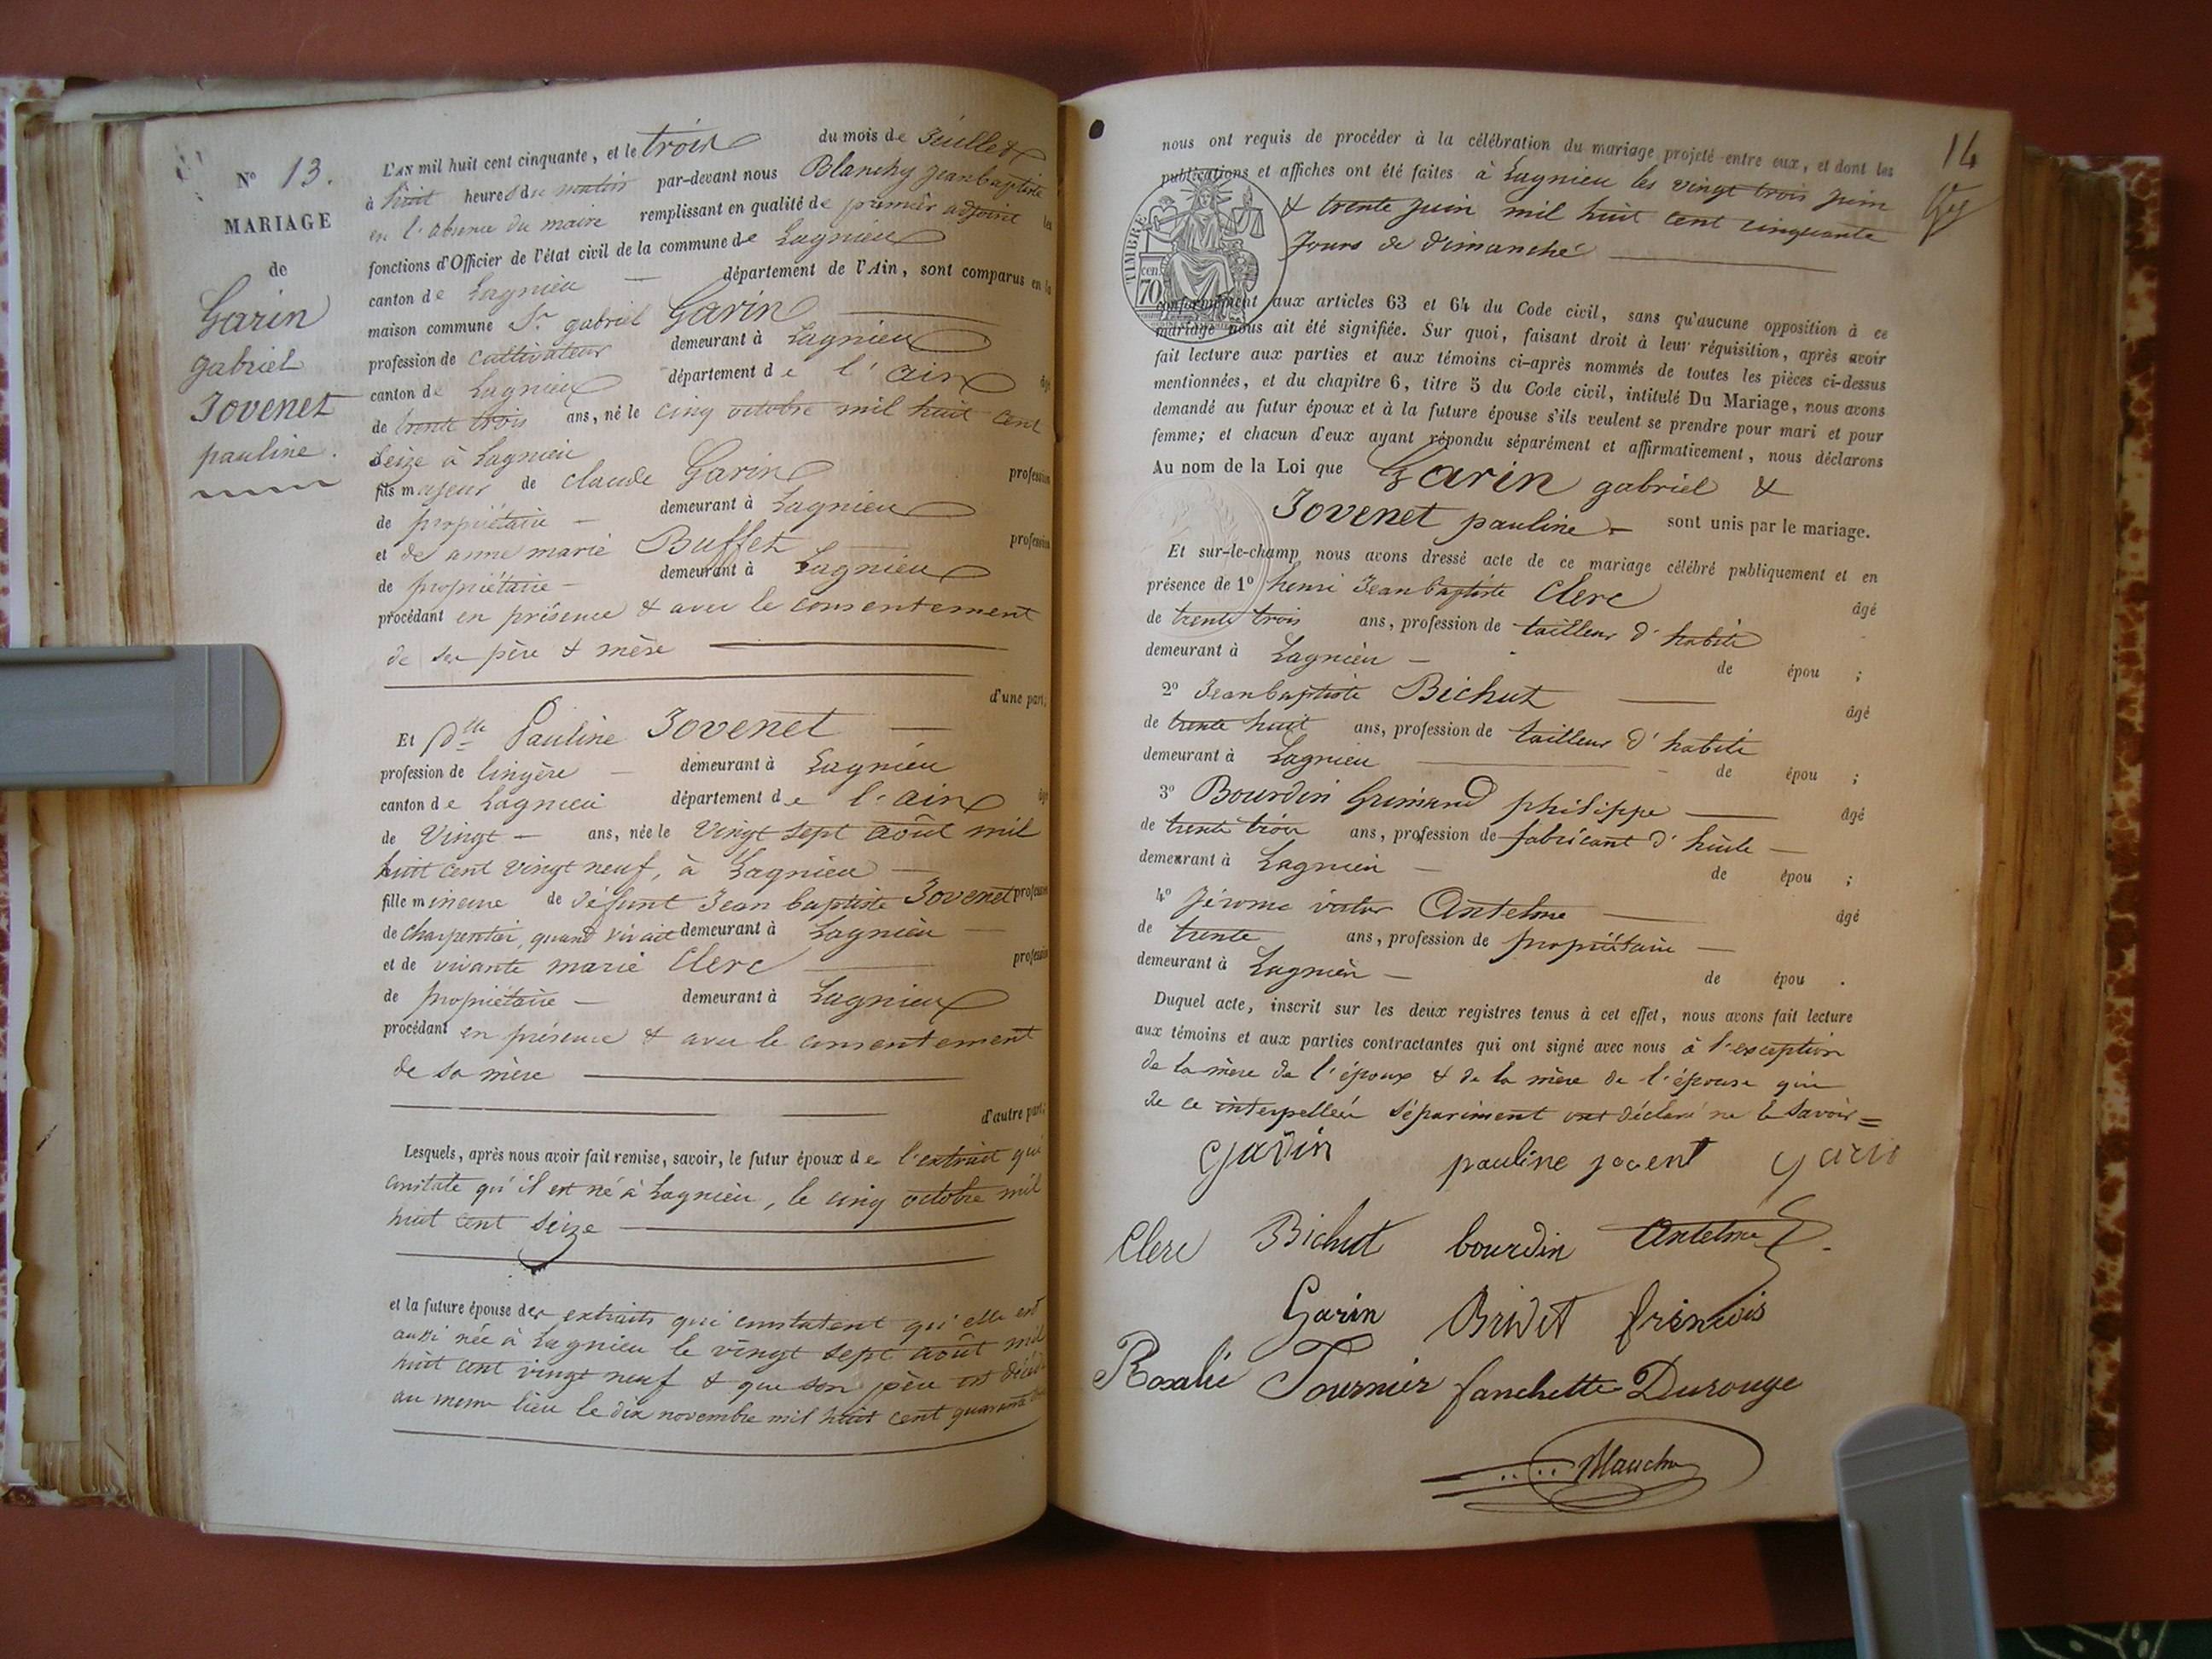 N° 13.
MARIAGE
de
Garin
gabriel
Jovenet
pauline.
L'AN mil huit cent cinquante, et le trois du mois de Juillet
à huit heures du matin par-devant nous Blanchy Jean baptiste
en l'absence du maire remplissant en qualité de premier adjoint les
fonctions d'Officier de l'état civil de la commune de Lagnieu
canton de Lagnieu département de l'Ain, sont comparus en la
maison commune Sr gabriel Garin
profession de cultivateur demeurant à Lagnieu
canton de Lagnieu département de l'ain âgé
de trente trois ans, né le cinq octobre mil huit cent
Seize à Lagnieu
fils majeur de claude Garin profession
de propriétaire demeurant à Lagnieu
et de anne marie Buffet profession
de propriétaire demeurant à Lagnieu
procédant en présence & avec le consentement
de ses père & mère
d'une part,
Et Dlle Pauline Jovenet
profession de lingère demeurant à Lagnieu
canton de Lagnieu département de l'ain âgé
de Vingt ans, née le Vingt sept août mil
huit cent vingt neuf, à Lagnieu
fille mineure de défunt Jean baptiste Jovenet profession
de charpentier, quand vivait demeurant à Lagnieu
et de vivante marie Clerc profession
de propriétaire demeurant à Lagnieu
procédant en présence & avec le consentement
de sa mère
d'autre part;
Lesquels, après nous avoir fait remise, savoir, le futur époux de l'extrait qui
constate qu'il est né à Lagnieu, le cinq octobre mil
huit cent seize
et la future épouse des extraits qui constatent qu'elle est
aussi née à Lagnieu le vingt sept août mil
huit cent vingt neuf & que son père est décédé
au meme lieu le dix novembre mil huit cent quarante
14
nous ont requis de procéder à la célébration du mariage projeté entre eux, et dont les
publications et affiches ont été faites à Lagnieu les vingt trois juin
& trente juin mil huit cent cinquante
Jours de dimanche
TIMBRE
70 cen.
conformément aux articles 63 et 64 du Code civil, sans qu'aucune opposition à ce
mariage nous ait été signifiée. Sur quoi, faisant droit à leur réquisition, après avoir
fait lecture aux parties et aux témoins ci-après nommés de toutes les pièces ci-dessus
mentionnées, et du chapitre 6, titre 5 du Code civil, intitulé Du Mariage, nous avons
demandé au futur époux et à la future épouse s'ils veulent se prendre pour mari et pour
femme; et chacun d'eux ayant répondu séparément et affirmativement, nous déclarons
Au nom de la Loi que Garin gabriel &
Jovenet pauline sont unis par le mariage.
Et sur-le-champ nous avons dressé acte de ce mariage célébré publiquement et en
présence de 1° henri Jean baptiste Clerc âgé
de trente trois ans, profession de tailleur d'habits
demeurant à Lagnieu de épou ;
2° Jean baptiste Bichut âgé
de trente huit ans, profession de tailleur d'habits
demeurant à Lagnieu de épou ;
3° Bourdin Grimand philippe âgé
de trente trois ans, profession de fabricant d'huile
demeurant à Lagnieu de épou ;
4° Jérome victor Antelme âgé
de trente ans, profession de propriétaire
demeurant à Lagnieu de épou .
Duquel acte, inscrit sur les deux registres tenus à cet effet, nous avons fait lecture
aux témoins et aux parties contractantes qui ont signé avec nous à l'exception
de la mère de l'époux & de la mère de l'épouse qui
de ce interpellées séparément ont déclaré ne le savoir =
Garin pauline jovent garin
Clerc Bichut bourdin Antelme
Garin Brivet
Rosalie Tournier fanchette Durouge